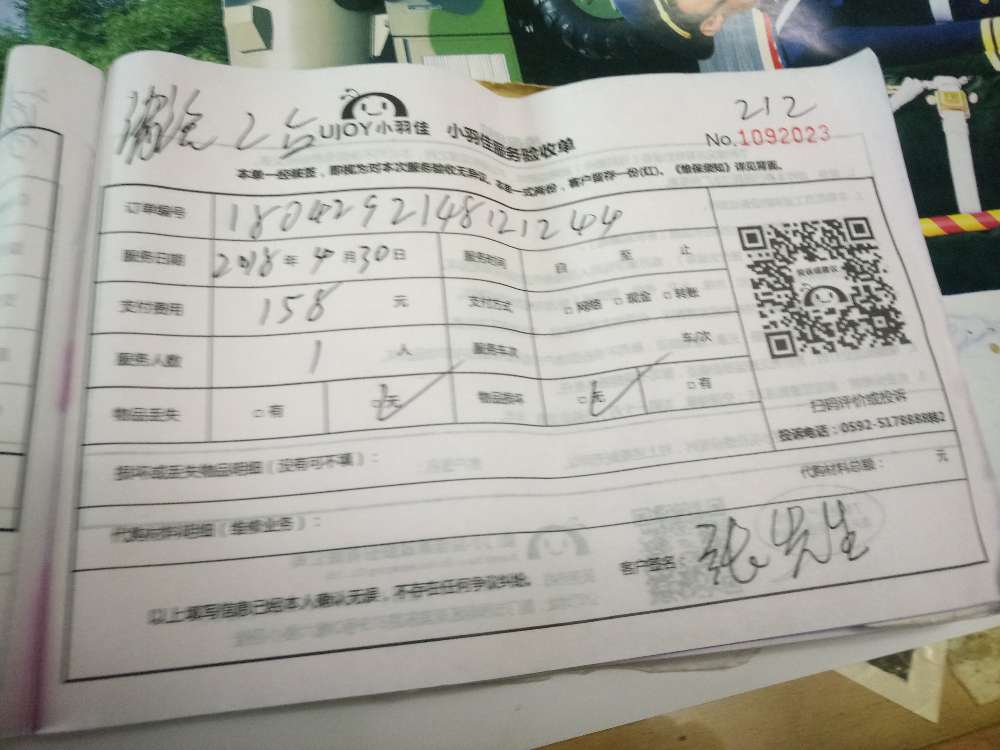 2台
212
UJOY小羽佳 小羽佳服务验收单
No.1092023
本单一经核签，即视为对本次服务验收无异议。本单一式两份，客户留存一份(红)。《维保须知》详见背面。
订单编号 1804292148121244
服务日期 2018年4月30日 服务时间 自 至 止
支付费用 158 元 支付方式 □网络 □现金 □转账
服务人数 1 人 服务车次 车/次
物品丢失 □有 □无 物品损坏 □无 □有
扫码评价或投诉
投诉电话：0592-5178888转2
损坏或丢失物品明细（没有可不填）：
代购材料明细（维修业务）： 代购材料总额： 元
以上填写信息已经本人确认无误，不存在任何争议纠纷。 客户签名： 张先生